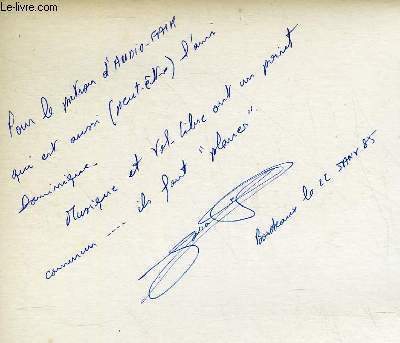 Le-Livre.com
Pour le patron d'AUDIO-FAIR
qui est aussi (peut-être) l'ami
Dominique.
Musique et Vol Libre ont un point
commun --- ils font "planer".
Bordeaux le 22 JANV 85